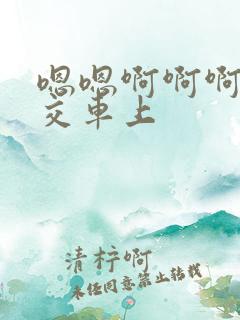 嗯嗯啊啊啊
交车上
清梓啊
未经同意禁止转载